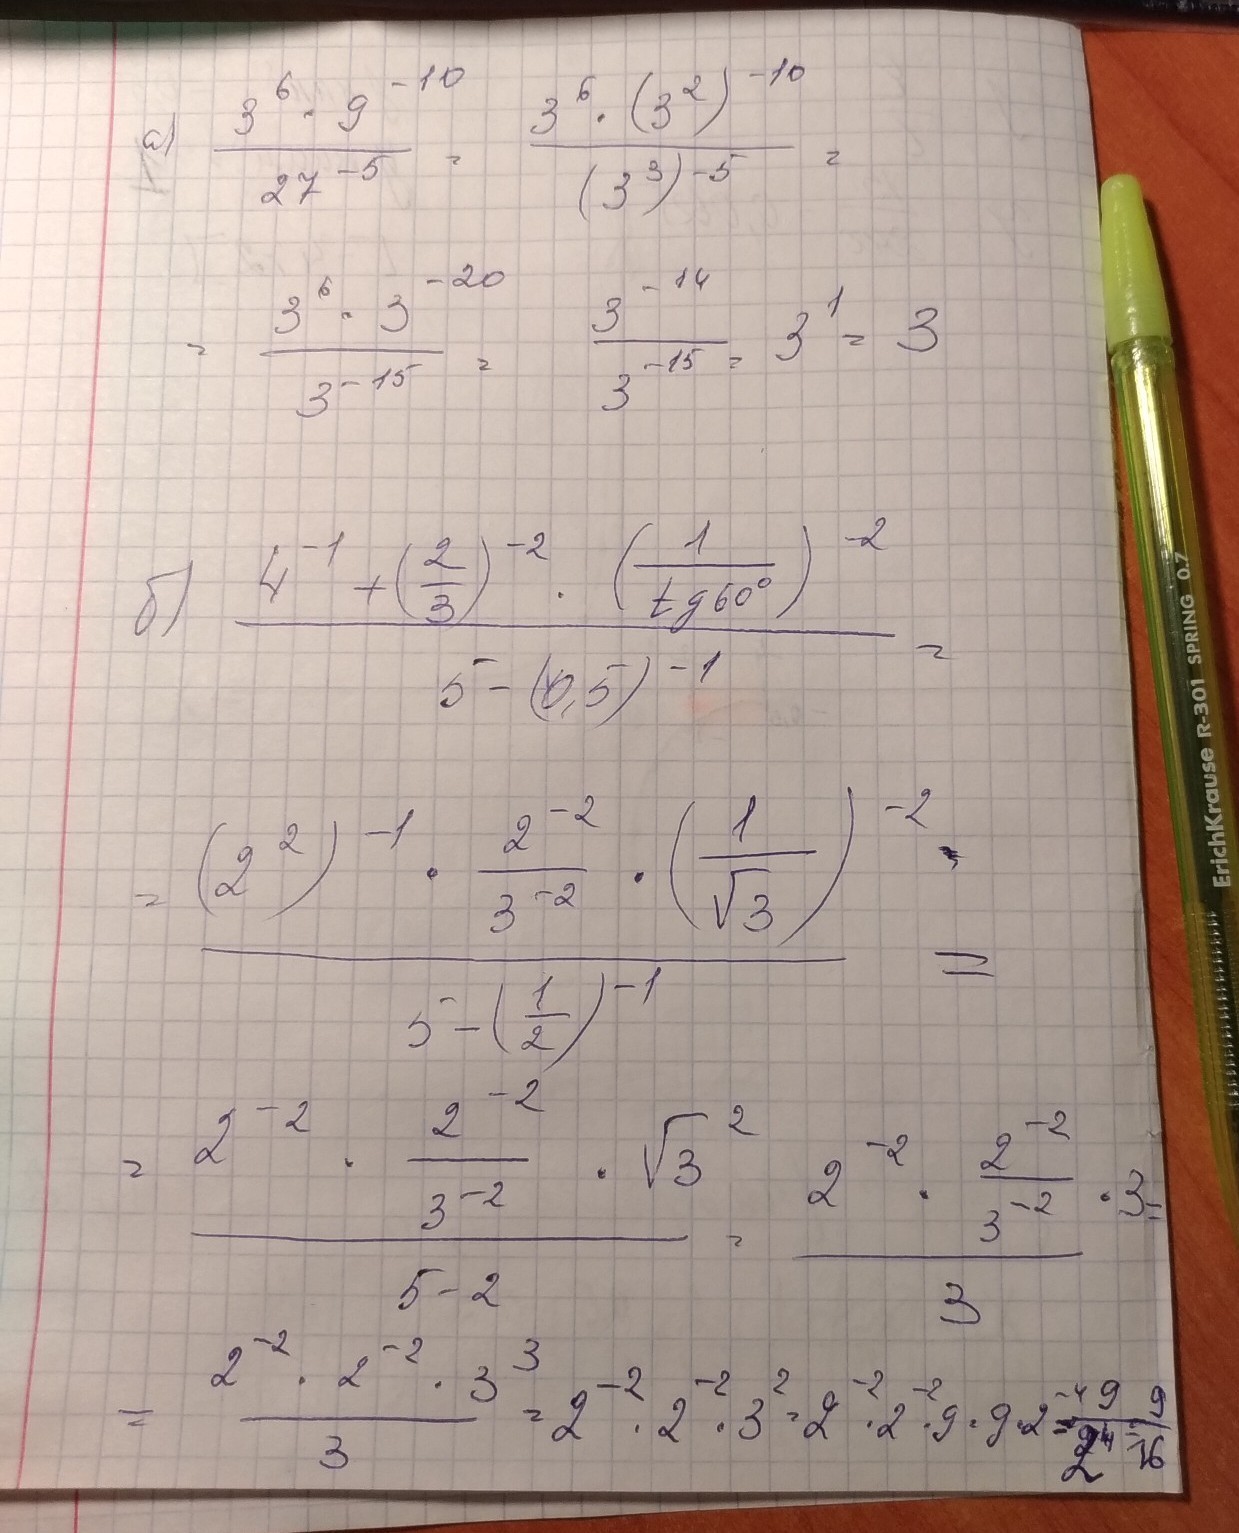 а) (3^6 · 9^-10) / 27^-5 = (3^6 · (3^2)^-10) / (3^3)^-5 =
= (3^6 · 3^-20) / 3^-15 = 3^-14 / 3^-15 = 3^1 = 3
б) (4^-1 + (2/3)^-2 · (1/tg60°)^-2) / (5 - (0,5)^-1) =
= ((2^2)^-1 · 2^-2/3^-2 · (1/√3)^-2) / (5 - (1/2)^-1) =
= (2^-2 · 2^-2/3^-2 · √3^2) / (5 - 2) = (2^-2 · 2^-2/3^-2 · 3) / 3 =
= (2^-2 · 2^-2 · 3^3) / 3 = 2^-2 · 2^-2 · 3^2 = 2^-2 · 2^-2 · 9 = 9 · 2^-4 = 9/2^4 = 9/16
ErichKrause R-301 SPRING 0.7